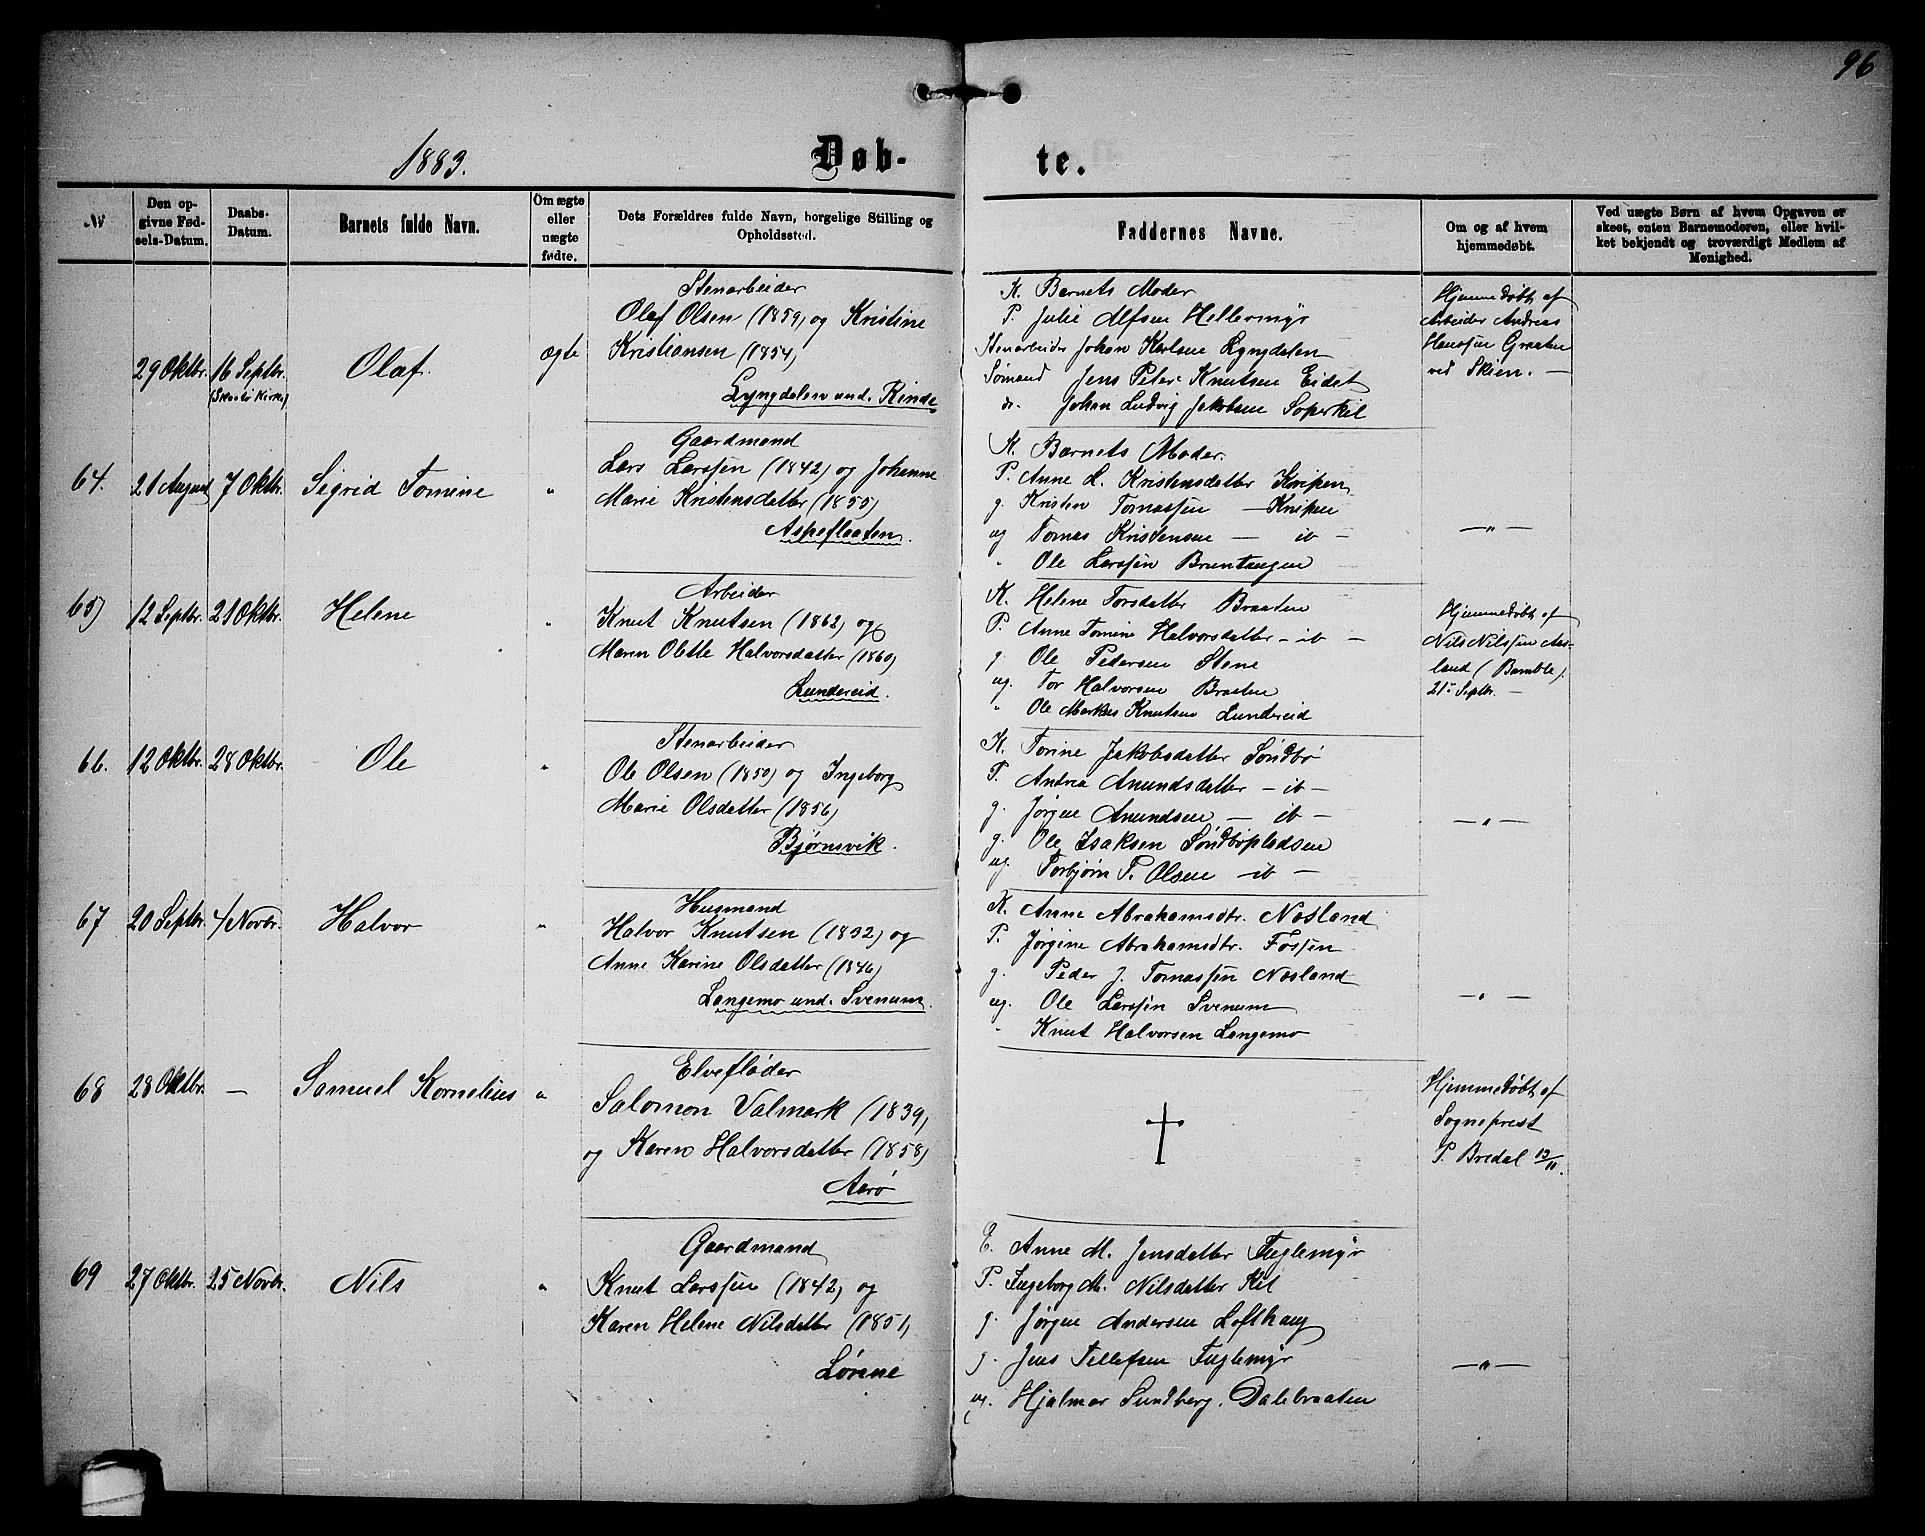 96
1883.
Døb-
te.
№
Den op-
givne Fød-
sels-Datum.
Daabs-
Datum.
Barnets fulde Navn.
Om ægte
eller
uægte
fødte.
Dets Forældres fulde Navn, borgelige Stilling og
Opholdssted.
Faddernes Navne.
Om og af hvem
hjemmedøbt.
Ved uægte Børn af hvem Opgaven er
skeet, enten Barnemoderen, eller hvil-
ket bekjendt og troværdigt Medlem af
Menighed.
29 Oktbr. 16 Septbr. Olaf. ægte
Stenarbeider
Olaf Olsen (1859) og Kristine
Kristiansen (1854)
Lyngdalen und. Rinde
K. Barnets Moder
P. Julie Alfsen Hellermyr
Stenarbeider Johan Karlsen Lyngdalen
Sømand Jens Peter Knutsen Eidet
do. Johan Ludvig Jakobsen Soperkil
Hjemmedøbt af
Arbeider Andreas
Hanssen Graaten
ved Skien. —
64. 21 August 7 Oktbr. Sigrid Tomine "
Gaardmand
Lars Larssen (1842) og Johanne
Marie Kristensdatter (1855)
Aspeflaaten.
K. Barnets Moder.
P. Anne L. Kristensdatter Kvipen
g. Kristen Tomassen — Knipen
ug Tomas Kristensen — ib —
" Ole Larssen Bruntangen
— " —
65) 12 Septbr. 21 Oktbr. Helene "
Arbeider
Knut Knutsen (1862) og
Maren Olette Halvorsdatter (1860)
Lundereid.
K. Helene Torsdatter Braaten
P. Anne Tomine Halvorsdatter — ib —
g. Ole Pedersen Stene
ug. Tor Halvorsen Braaten
" Ole Markus Knutsen Lundereid
Hjemmedøbt af
Nils Nilssen Aas-
land (Bamble)
21de Septbr. —
66. 12 Oktbr. 28 Oktbr. Ole "
Stenarbeider
Ole Olsen (1850) og Ingeborg
Marie Olsdatter (1856)
Bjørnsvik.
K. Torine Jakobsdatter Søndbø
P. Andrea Amundsdatter — ib —
g. Jørgen Amundsen — ib —
g. Ole Isaksen Søndbøpladsen
ug. Torbjørn P. Olsen — ib —
— " —
67 20 Septbr. 4 Novbr. Halvor "
Husmand
Halvor Knutsen (1832) og
Anne Karine Olsdatter (1846)
Langemo und. Svenum.
K. Anne Abrahamsdtr. Nasland
P. Jørgine Abrahamsdtr. Fossen
g. Peder J. Tomassen Nasland
ug. Ole Larssen Svenum
" Knut Halvorsen Langemo
— " —
68 28 Oktbr. — Samuel Kornelius "
Elvefløder
Salomon Valmark (1839)
og Karen Halvorsdatter (1858)
Aarø
Hjemmedøbt af
Sogneprest
P. Bredal 12/11.
69 27 Oktbr. 25 Novbr. Nils "
Gaardmand
Knut Larssen (1842) og
Karen Helene Nilsdatter (1851)
Lønne
K. Anne M. Jensdatter Fuglemyr
P. Ingeborg M. Nilsdatter Kil
g. Jørgen Andersen Lofthaug
g. Jens Tellefsen Fuglemyr
ug. Hjalmar Sundberg. Dalebraaten
— " —